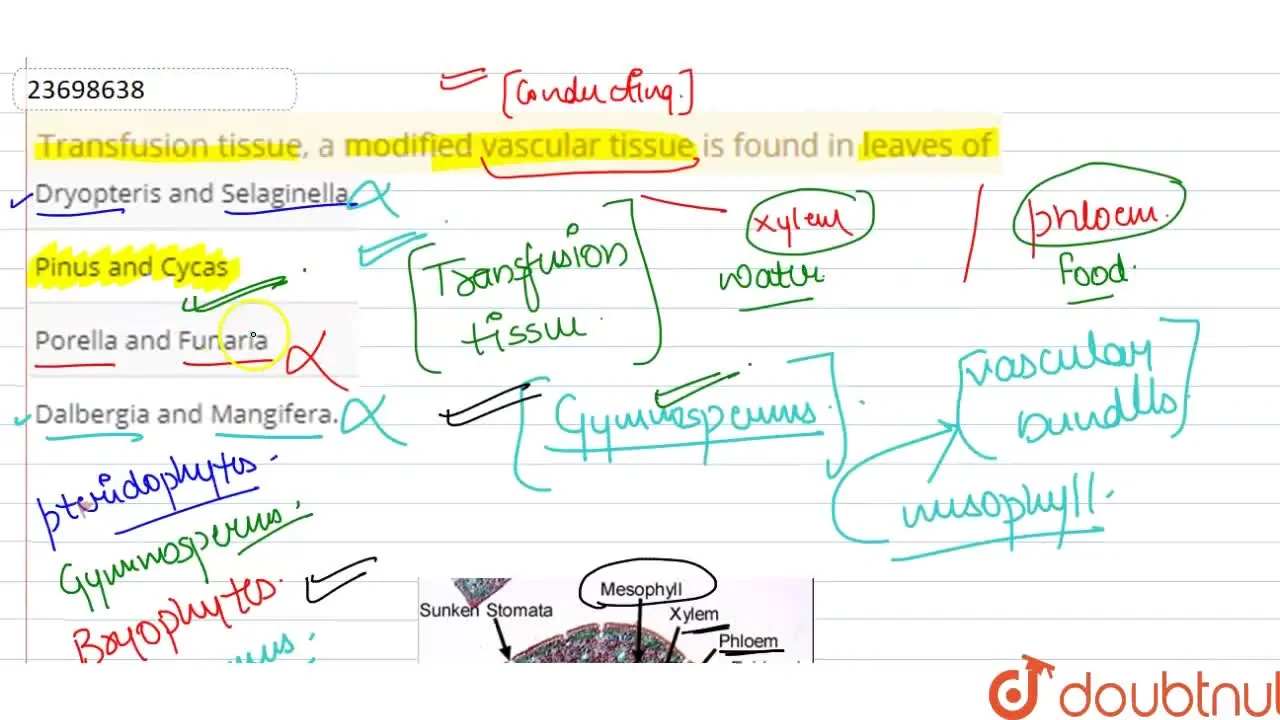 23698638
[Conducting.]
Transfusion tissue, a modified vascular tissue is found in leaves of
Dryopteris and Selaginella.
Pinus and Cycas
Porella and Funaria
Dalbergia and Mangifera.
[Transfusion
tissue.]
xylem
Water
phloem.
Food.
[Gymnosperms.]
[vascular
bundles]
mesophyll.
pteridophytes.
Gymnosperms.
Bryophytes.
Mesophyll
Sunken Stomata
Xylem
Phloem
doubtnut